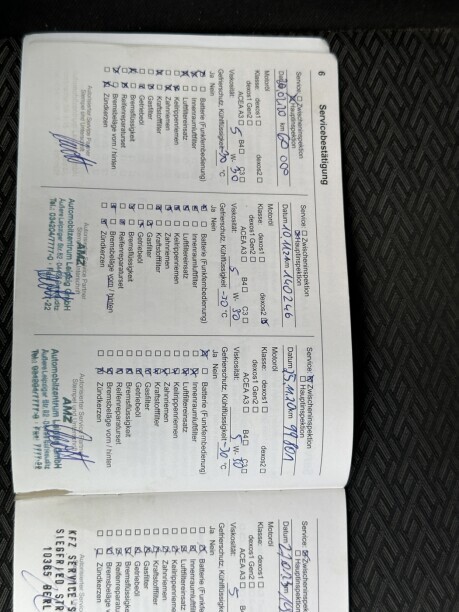 6
Servicebestätigung
Service: Zwischeninspektion
Hauptinspektion
km 60 000
Motoröl
Klasse: dexos1 dexos2
dexos1 Gen2
ACEA A3 B4 C3
Viskosität: 5 W- 30
Gefrierschutz, Kühlflüssigkeit -30 °C
Ja Nein
Batterie (Funkfernbedienung)
Innenraumluftfilter
Luftfiltereinsatz
Keilrippenriemen
Zahnriemen
Kraftstofffilter
Gasfilter
Getriebeöl
Bremsflüssigkeit
Reifenreparaturset
Bremsbeläge vorn / hinten
Zündkerzen
Autorisierter Service Partner
Stempel und Unterschrift
Service: Zwischeninspektion
Hauptinspektion
Datum km 140246
Motoröl
Klasse: dexos1 dexos2
dexos1 Gen2
ACEA A3 B4 C3
Viskosität: 5 W- 30
Gefrierschutz, Kühlflüssigkeit °C
Ja Nein
Batterie (Funkfernbedienung)
Innenraumluftfilter
Luftfiltereinsatz
Keilrippenriemen
Zahnriemen
Kraftstofffilter
Gasfilter
Getriebeöl
Bremsflüssigkeit
Reifenreparaturset
Bremsbeläge vorn / hinten
Zündkerzen
Autorisierter Service Partner
AMZ
Automobilzentrum Leipzig GmbH
Service: Zwischeninspektion
Hauptinspektion
Datum km
Motoröl
Klasse: dexos1 dexos2
dexos1 Gen2
ACEA A3 B4 C3
Viskosität: 5 W- 30
Gefrierschutz, Kühlflüssigkeit -30 °C
Ja Nein
Batterie (Funkfernbedienung)
Innenraumluftfilter
Luftfiltereinsatz
Keilrippenriemen
Zahnriemen
Kraftstofffilter
Gasfilter
Getriebeöl
Bremsflüssigkeit
Reifenreparaturset
Bremsbeläge vorn / hinten
Zündkerzen
Autorisierter Service Partner
AMZ
Automobilzentrum
Service:
Datum
Motoröl
Klasse: dexos1
dexos1 Gen2
ACEA A3
Viskosität: 5
Gefrierschutz, Kühlflüssi
Ja Nein
Batterie (Funk
Innenraumluft
Luftfiltereinsatz
Keilrippenriemen
Zahnriemen
Kraftstofffilter
Gasfilter
Getriebeöl
Bremsflüssigk
Reifenreparatu
Bremsbeläge v
Zündkerzen
KFZ SERVICE
SIEGFRIED STR
10365 BERL